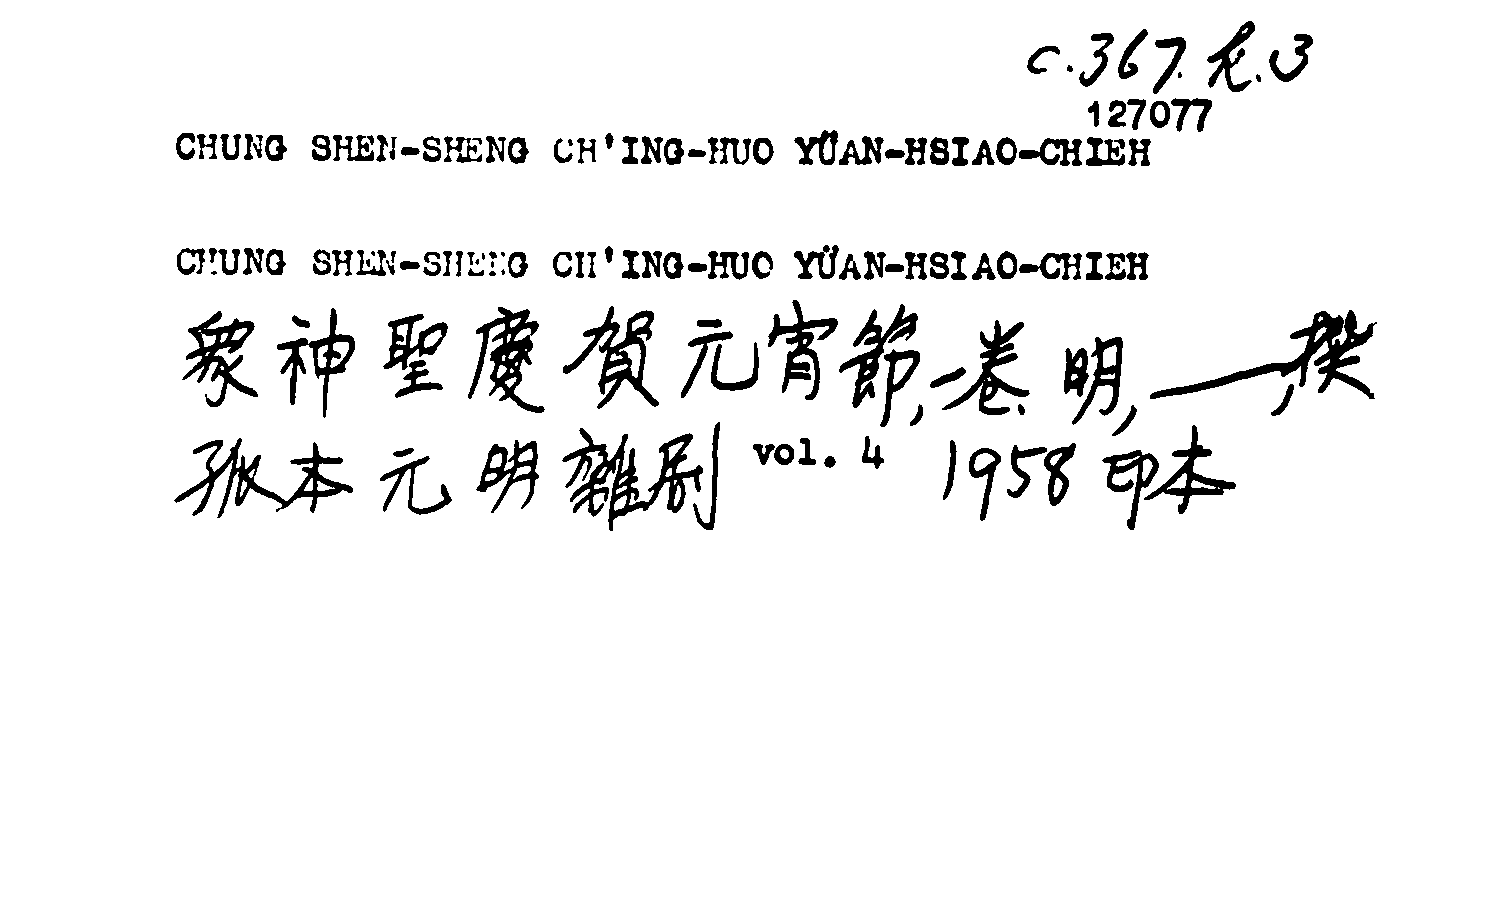 c.367.k.3
127077
CHUNG SHEN-SHENG CH'ING-HUO YÜAN-HSIAO-CHIEH
CHUNG SHEN-SHENG CH'ING-HUO YÜAN-HSIAO-CHIEH
衆神聖慶賀元宵節,一卷.明,——,撰
孤本元明雜劇 vol. 4 1958印本